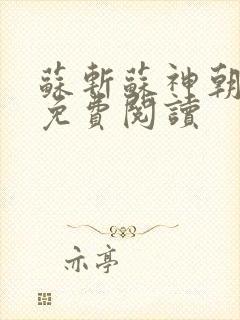 蘇斬蘇神朝
免費閱讀
亦亭